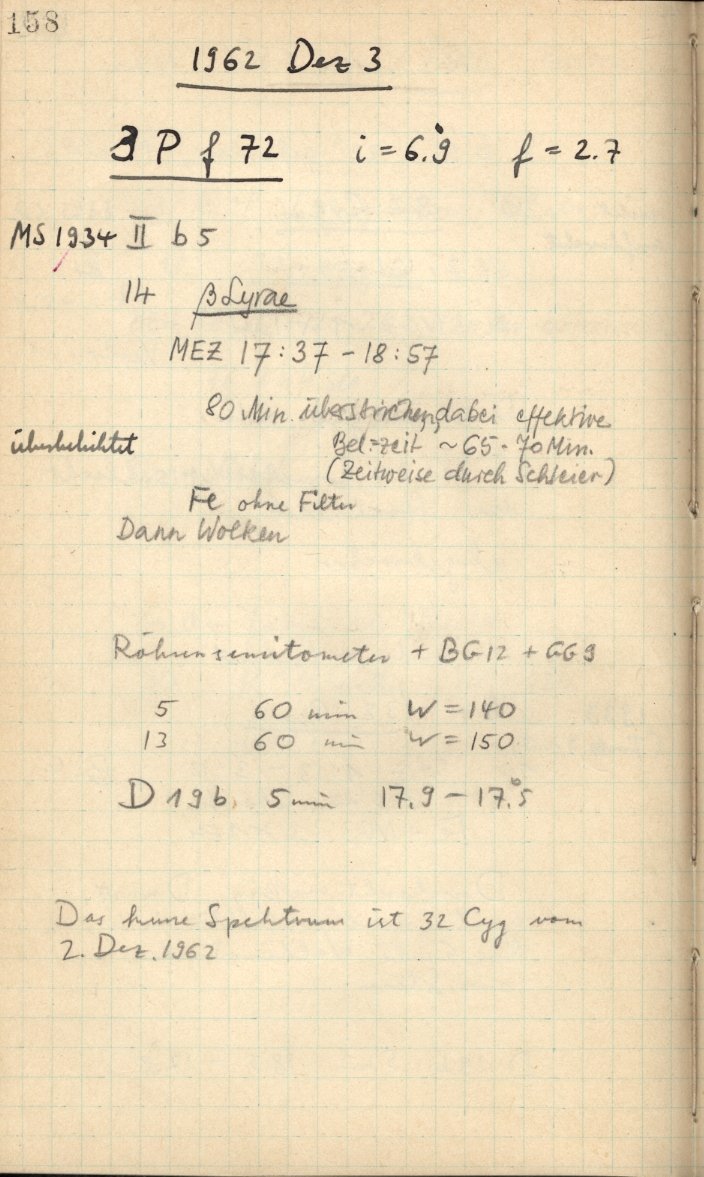 158
1962 Dez 3
3 P f 72 i = 6.°9 f = 2.7
MS 1934 II b 5
14 β Lyrae
MEZ 17:37 - 18:57
80 Min. überstrichen, dabei effektive
überbelichtet Bel.=zeit ~ 65 - 70 Min.
(Zeitweise durch Schleier)
Fe ohne Filter
Dann Wolken
Röhrensensitometer + BG12 + GG9
5 60 min W = 140
13 60 min W = 150
D 19 b, 5 min 17.9 - 17.°5
Das Spektrum ist 32 Cyg vom
2. Dez. 1962